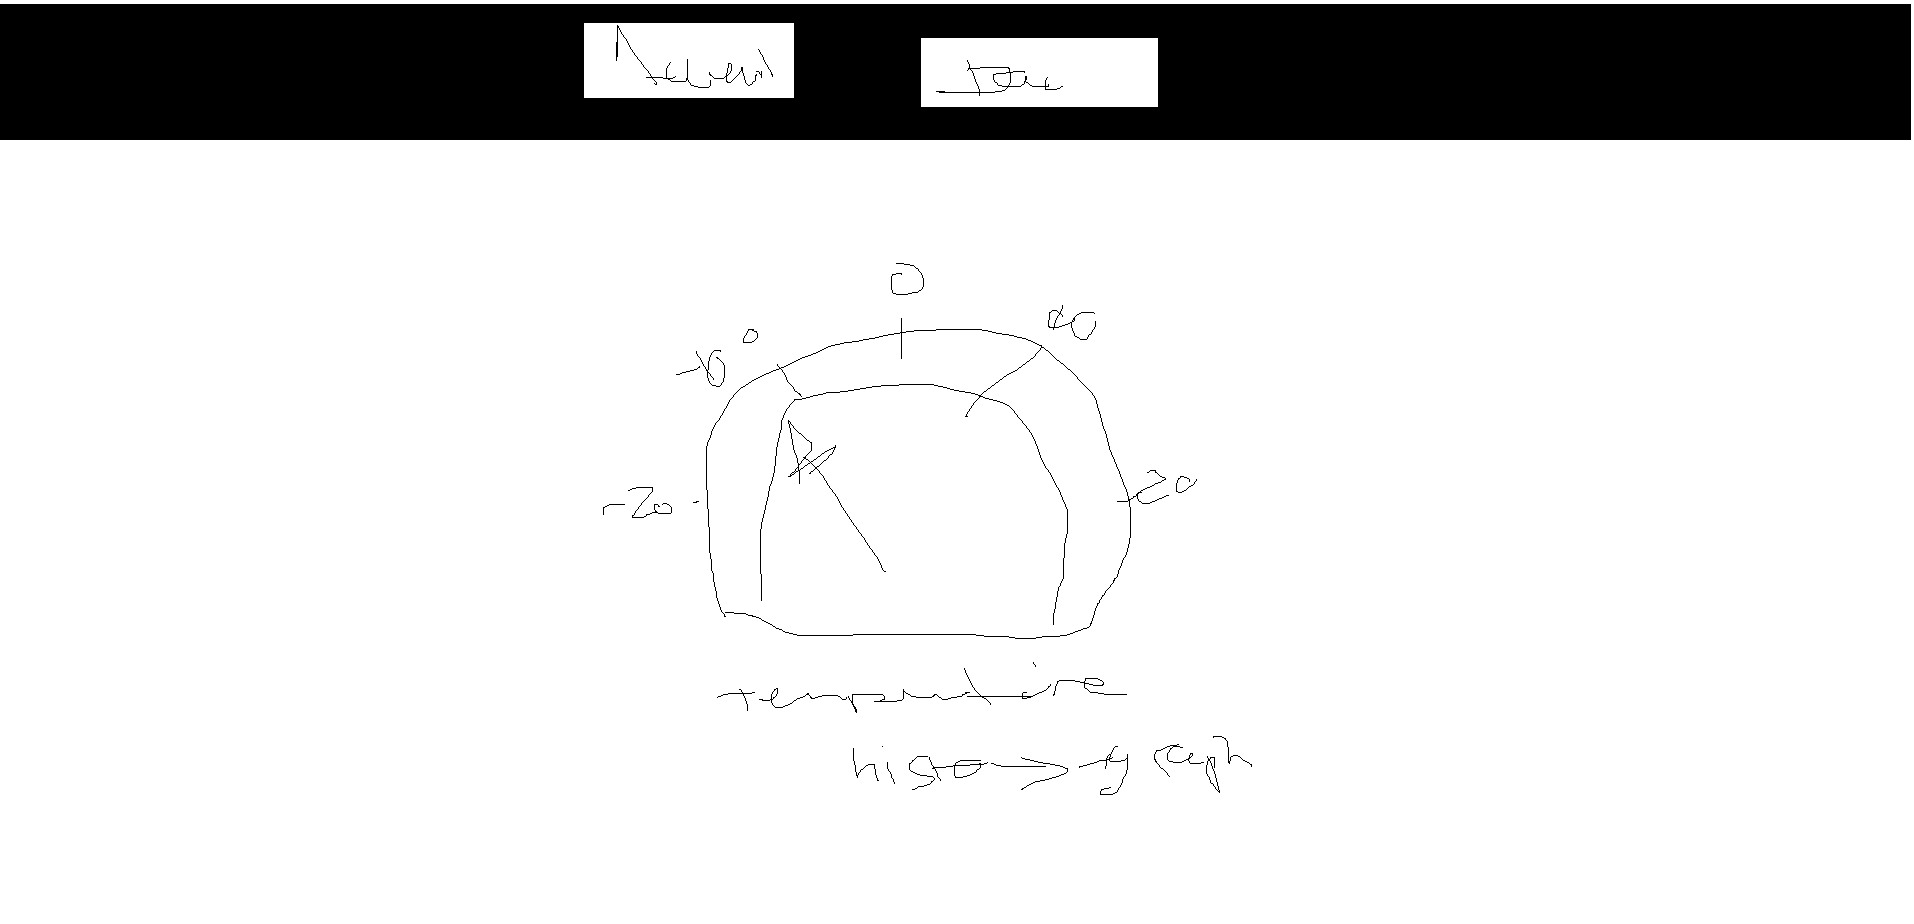 0
-10°
10
-20
20
temperature
histo → graph